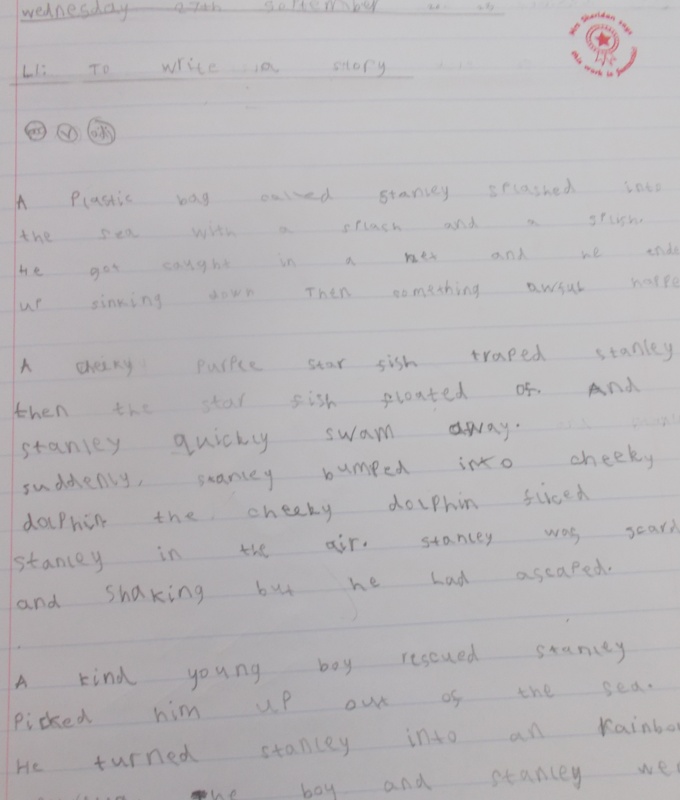 wednesday 27th September
LI: To write a story
Mrs Sheridan says this work is
A Plastic bag called stanley splashed into
the sea with a splash and a splish.
He got caught in a net and he ende
up sinking down Then something awful happe
A cheeky PurPle star fish traped stanley
then the star fish floated of. And
stanley quickly swam away.
suddenly, stanley bumped into cheeky
dolphin. the cheeky dolphin fliced
stanley in the air. stanley was scard
and shaking but he had ascaped.
A kind young boy rescued stanley
Picked him up out of the sea.
He turned stanley into an Rainbo
the boy and stanley we